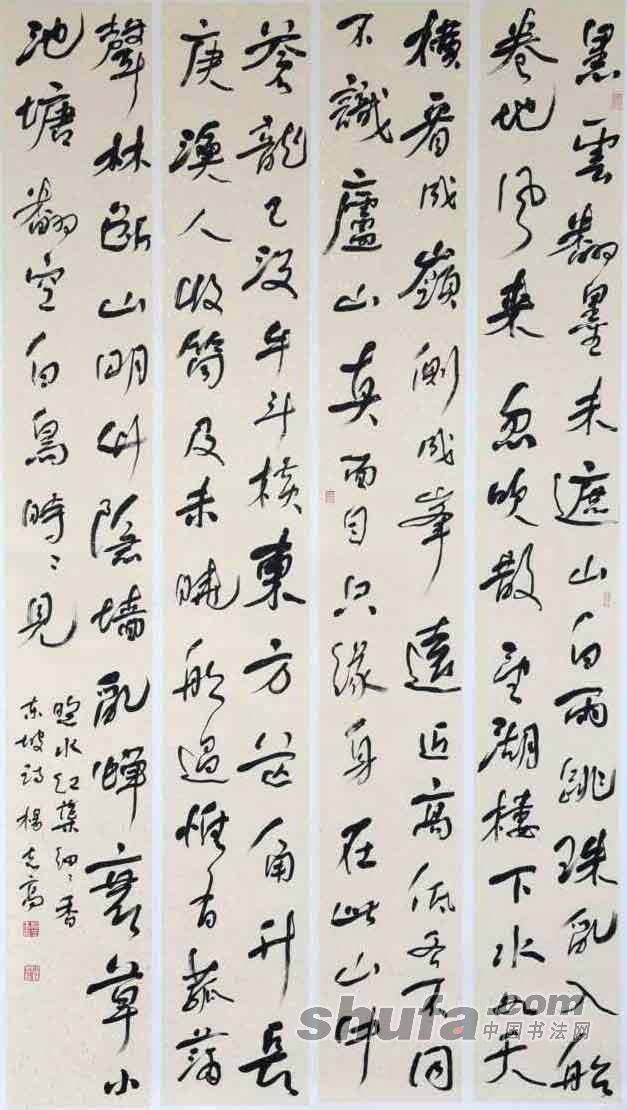 黑雲翻墨未遮山白雨跳珠亂入船
卷地風来忽吹散望湖樓下水如天
橫看成嶺側成峯遠近高低各不同
不識廬山真面目只緣身在此山中
蒼龍已没牛斗橫東方芒角升長
庚漁人收筒及未曉船過惟有菰蒲
聲林斷山明竹隱墻亂蟬衰草小
池塘翻空白鳥時々見
照水紅蕖細々香
东坡诗楊克高
shufa.com
中国书法网